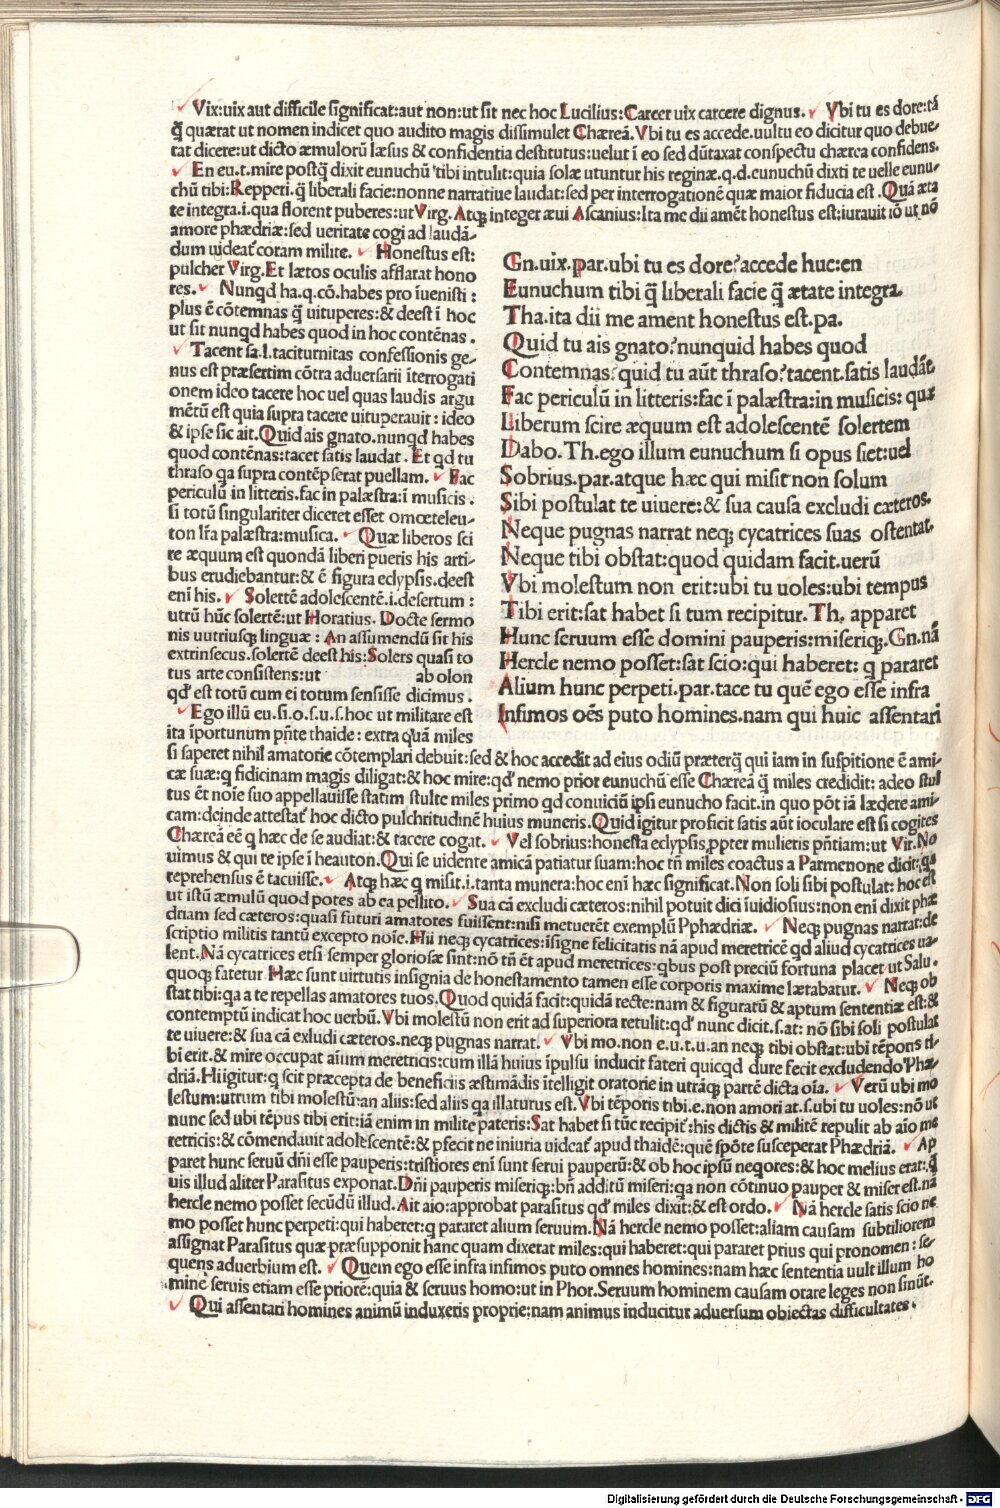 Vix:uix aut difficile significat:aut non:ut sit nec hoc Lucilius:Carcer uix carcere dignus. Vbi tu es dore:tā
q̄ quærat ut nomen indicet quo audito magis dissimulet Chæreā.Vbi tu es accede.uultu eo dicitur quo debue-
rat dicere:ut dicto æmulorū læsus & confidentia destitutus:uelut ī eo sed dūtaxat conspectu chærea confidens.
En eu.t.mire postq̄ dixit eunuchū tibi intulit:quia solæ utuntur his reginæ.q.d.eunuchū dixti te uelle eunu-
chū tibi:Repperi.q̄ liberali facie:nonne narratiue laudat:sed per interrogationē quæ maior fiducia est.Quā æta
te integra.i.qua florent puberes:ut Virg.Atq; integer æui Ascanius:Ita me dii amēt honestus est:iurauit iō ut nō
amore phædriæ:sed ueritate cogi ad laudā-
dum uideat̄ coram milite. Honestus est:
pulcher Virg.Et lætos oculis afflarat hono
res. Nunqd ha.q.cō.habes pro īuenisti:
plus ē cōtemnas q̄ uituperes:& deest ī hoc
ut sit nunqd habes quod in hoc contēnas.
Tacent sa.l.taciturnitas confessionis ge-
nus est præsertim cōtra aduersarii īterrogati
onem ideo tacere hoc uel quas laudis argu
mētū est quia supra tacere uituperauit:ideo
& ipse sic ait.Quid ais gnato.nunqd habes
quod contēnas:tacet satis laudat.Et qd tu
thraso qa supra contēpserat puellam. Fac
periculū in litteris.fac in palæstra:ī musicis.
si totū singulariter diceret esset omœteleu-
ton lr̄a palæstra:musica. Quæ liberos sci
re æquum est quondā liberi pueris his arti-
bus erudiebantur:& ē figura eclypsis.deest
enī his. Solertē adolescentē.i.desertum:
utrū hūc solertē:ut Horatius.Docte sermo
nis uutriusq; linguæ:An assumendū sit his
extrinsecus.solertē deest his:Solers quasi to
tus arte consistens:ut ab olon
qd' est totū cum ei totum sensisse dicimus.
Ego illū eu.si.o.s.u.s.hoc ut militare est
ita īportunum pn̄te thaide:extra quā miles
Gn.uix.par.ubi tu es dore?accede huc:en
Eunuchum tibi q̄ liberali facie q̄ ætate integra.
Tha.ita dii me ament honestus est.pa.
Quid tu ais gnato?nunquid habes quod
Contemnas?quid tu aūt thraso?tacent.satis laudāt.
Fac periculū in litteris:fac ī palæstra:in musicis: quæ
Liberum scire æquum est adolescentē solertem
Dabo.Th.ego illum eunuchum si opus siet:uel
Sobrius.par.atque hæc qui misit non solum
Sibi postulat te uiuere:& sua causa excludi cæteros.
Neque pugnas narrat neq; cycatrices suas ostentat.
Neque tibi obstat:quod quidam facit.uerū
Vbi molestum non erit:ubi tu uoles:ubi tempus
Tibi erit:sat habet si tum recipitur.Th. apparet
Hunc seruum esse domini pauperis:miseriq;.Gn.nā
Hercle nemo posset:sat scio:qui haberet: q pararet
Alium hunc perpeti.par.tace tu quē ego esse infra
Infimos oēs puto homines.nam qui huic assentari
si saperet nihil amatorie cōtemplari debuit:sed & hoc accedit ad eius odiū præterq̄ qui iam in suspitione ē ami-
cæ suæ:q fidicinam magis diligat:& hoc mire:qd' nemo prior eunuchū esse Chæreā q̄ miles credidit: adeo stul
tus ēt noīe suo appellauisse statim stulte miles primo qd conuiciū ipsi eunucho facit.in quo pōt iā lædere ami-
cam:deinde attestat̄ hoc dicto pulchritudinē huius muneris.Quid igitur proficit satis aūt ioculare est si cogites
Chæreā eē q hæc de se audiat:& tacere cogat. Vel sobrius:honesta eclypsis,ppter mulieris pn̄tiam:ut Vir.No
uimus & qui te ipse ī heauton.Qui se uidente amicā patiatur suam:hoc tn̄ miles coactus a Parmenone dicit:qa
reprehensus ē tacuisse. Atq; hæc q misit.i.tanta munera:hoc enī hæc significat.Non soli sibi postulat: hoc est
ut istū æmulū quod potes ab ea pellito. Sua cā excludi cæteros:nihil potuit dici īuidiosius:non enī dixit phæ
driam sed cæteros:quasi futuri amatores fuissent:nisi metuerēt exemplū Pphædriæ. Neq; pugnas narrat:de
scriptio militis tantū excepto noīe.Hii neq; cycatrices:īsigne felicitatis nā apud meretricē qd aliud cycatrices ua-
lent.Nā cycatrices etsi semper gloriosæ sint:nō tn̄ ēt apud meretrices:qbus post preciū fortuna placet ut Salu.
quoq; fatetur Hæc sunt uirtutis insignia de honestamento tamen esse corporis maxime lætabatur. Neq; ob
stat tibi:qa a te repellas amatores tuos.Quod quidā facit:quidā recte:nam & figuratū & aptum sententiæ est:&
contemptū indicat hoc uerbū.Vbi molestū non erit ad superiora retulit:qd' nunc dicit.s.at: nō sibi soli postulat
te uiuere:& sua cā exludi cæteros.neq; pugnas narrat. Vbi mo.non e.u.t.u.an neq; tibi obstat:ubi tēpons ti-
bi erit.& mire occupat aīum meretricis:cum illā huius īpulsu inducit fateri quicqd dure fecit excludendo Phæ
driā.Hiigitur:q scit præcepta de beneficiis æstimādis ītelligit oratorie in utrāq; partē dicta oīa. Verū ubi mo
lestum:utrum tibi molestū:an aliis:sed aliis qa illaturus est.Vbi tēporis tibi.e.non amori at.s.ubi tu uoles:nō ut
nunc sed ubi tēpus tibi erit:iā enim in milite pateris:Sat habet si tūc recipit̄:his dictis & militē repulit ab aīo me
retricis:& cōmendauit adolescentē:& pfecit ne iniuria uideat̄ apud thaidē:quē spōte susceperat Phædriā. Ap
paret hunc seruū dn̄i esse pauperis:tristiores enī sunt serui pauperū:& ob hoc ipsū neqores:& hoc melius erat:q̄
uis illud aliter Parasitus exponat.Dn̄i pauperis miseriq;:bn̄ additū miseri:qa non cōtinuo pauper & miser est.nā
hercle nemo posset secūdū illud.Ait aīo:approbat parasitus qd' miles dixit:& est ordo. Nā hercle satis scio ne
mo posset hunc perpeti:qui haberet:q pararet alium seruum.Nā hercle nemo posset:aliam causam subtiliorem
assignat Parasitus quæ præsupponit hanc quam dixerat miles:qui haberet:qui pararet prius qui pronomen: se-
quens aduerbium est. Quem ego esse infra infimos puto omnes homines:nam hæc sententia uult illum ho
minē seruis etiam esse priorē:quia & seruus homo:ut in Phor.Seruum hominem causam orare leges non sinūt.
Qui assentari homines animū induxeris proprie:nam animus inducitur aduersum obiectas difficultates.
Digitalisierung gefördert durch die Deutsche Forschungsgemeinschaft - DFG